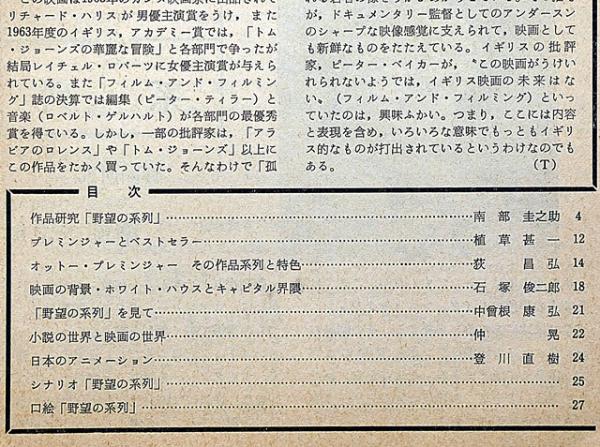 リチャード・ハリスが男優主演賞をうけ，また
1963年度のイギリス，アカデミー賞では，「トム
・ジョーンズの華麗な冒険」と各部門で争ったが
結局レイチェル・ロバーツに女優主演賞が与えら
れている。また「フィルム・アンド・フィルミン
グ」誌の決算では編集（ピーター・テイラー）と
音楽（ロベルト・ゲルハルト）が各部門の最優秀
賞を得ている。しかし，一部の批評家は，「アラ
ビアのロレンス」や「トム・ジョーンズ」以上に
この作品をたかく買っていた。そんなわけで「孤
が，ドキュメンタリー監督としてのアンダースン
のシャープな映像感覚に支えられて，映画として
も新鮮なものをたたえている。イギリスの批評
家，ピーター・ベイカーが，〝この映画がうけい
れられないようでは，イギリス映画の未来はな
い。（フィルム・アンド・フィルミング）といっ
ていたのは，興味ふかい。つまり，ここには内容
と表現を含め，いろいろな意味でもっともイギリ
ス的なものが打出されているというわけなのでも
ある。（T）
目次
作品研究「野望の系列」……南部圭之助 4
プレミンジャーとベストセラー……植草甚一 12
オットー・プレミンジャー　その作品系列と特色……荻昌弘 14
映画の背景・ホワイト・ハウスとキャピタル界隈……石塚俊二郎 18
「野望の系列」を見て……中曽根康弘 21
小説の世界と映画の世界……仲晃 22
日本のアニメーション……登川直樹 24
シナリオ「野望の系列」……25
口絵「野望の系列」……27